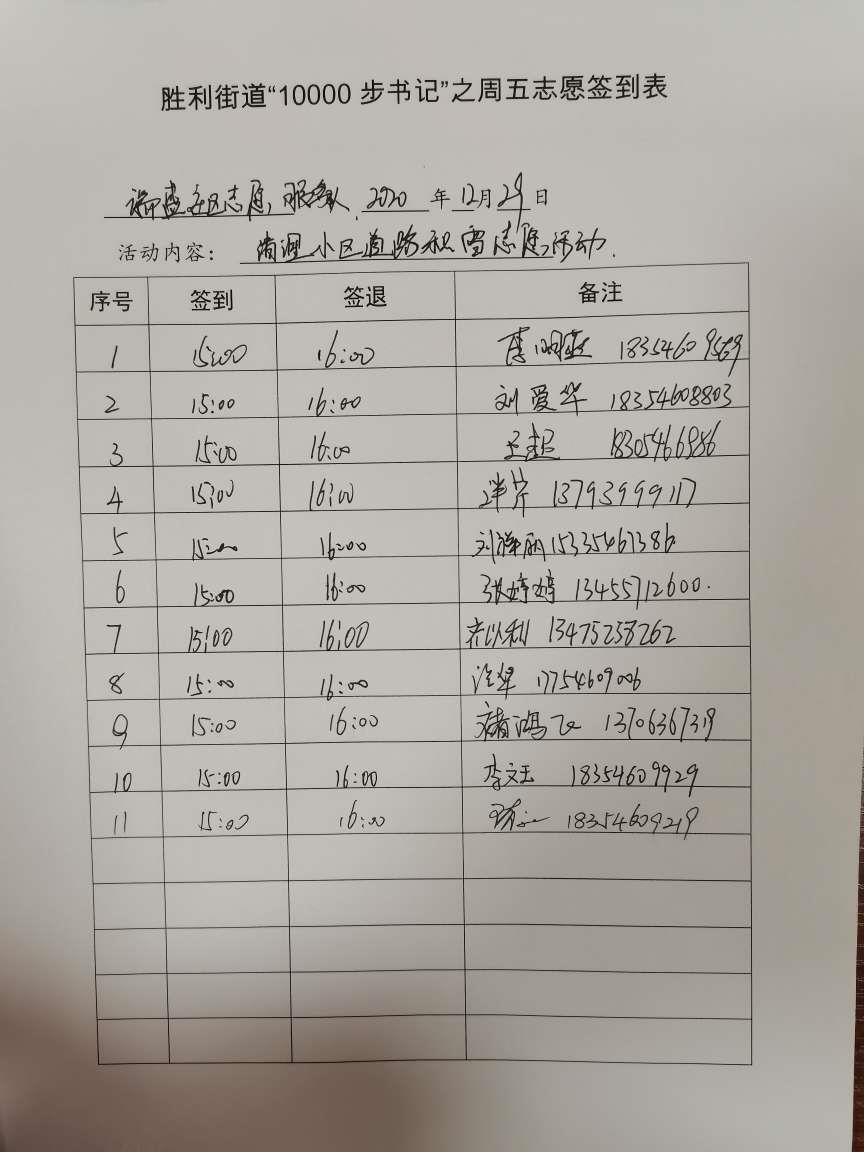 胜利街道“10000 步书记”之周五志愿签到表
社区志愿服务队 2020 年 12月 29 日
活动内容： 清理小区道路积雪志愿活动.
序号 签到 签退 备注
1 15:00 16:00 18354609569
2 15:00 16:00 刘爱华 18354608803
3 15:00 16:00 王超 18305466986
4 15:00 16:00 13793999117
5 15:00 16:00 刘祥丽 15335467386
6 15:00 16:00 张婷婷 13455712600.
7 15:00 16:00 齐以利 13475258262
8 15:00 16:00 17754609006
9 15:00 16:00 褚鸿飞 13706367319
10 15:00 16:00 李文玉 18354609929
11 15:00 16:00 18354609219